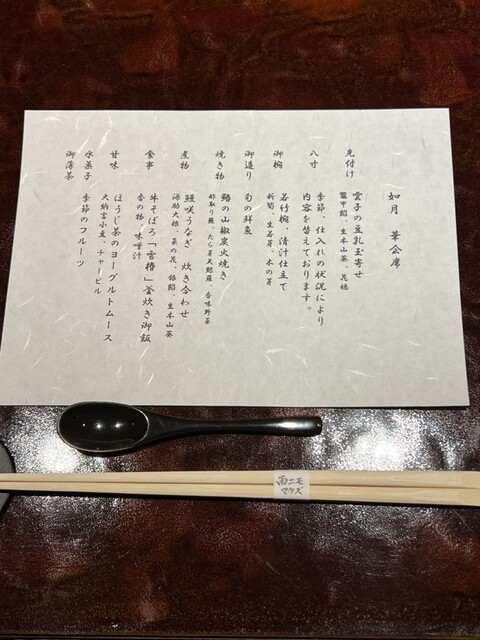 如月 華会席
先付け 雲子の豆乳玉寄せ
鼈甲餡、生本山葵、花穂
八寸 季節、仕入れの状況により
内容を替えております。
御椀 若竹椀、清汁仕立て
新筍、生若芽、木の芽
御造り 旬の鮮魚
焼き物 鰆の山椒炭火焼き
酢取り蓮、たら芽天麩羅、香味野菜
煮物 鰻咲うなぎ 炊き合わせ
源助大根、菜の花、銀餡、生本山葵
食事 牛そぼろ「雪椿」釜炊き御飯
香の物 味噌汁
甘味 ほうじ茶のヨーグルトムース
大納言小豆、チャービル
水菓子 季節のフルーツ
御薄茶
雨ニモ
マケズ